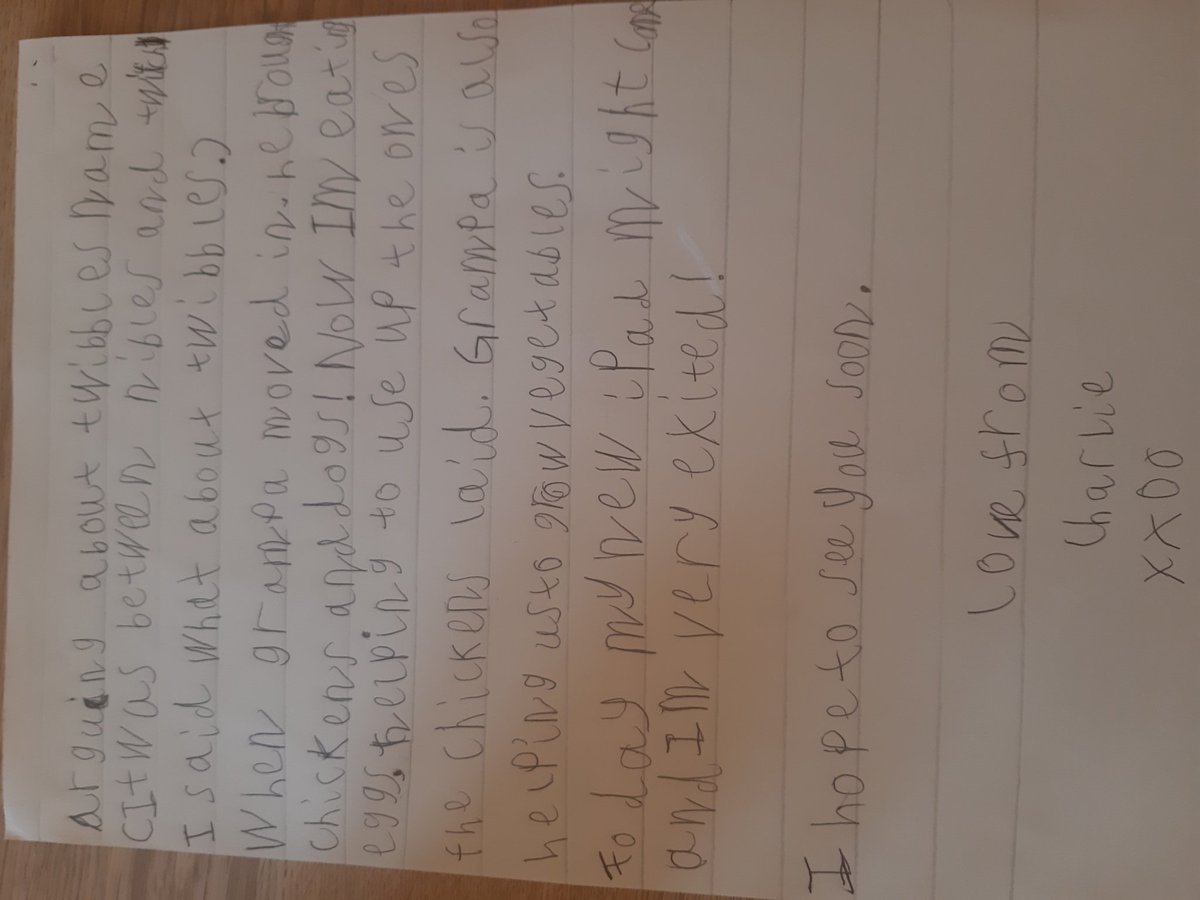 arguing about twibbles name
(It was between nibles and
I said what about twibbles.)
When grampa moved in. he brought
chickens and dogs! Now IM eating
eggs. helping to use up the ones
the chickens laid. Grampa is also
helping us to grow vegetables.
today my new iPad might come
and IM very exited!
I hope to see you soon.
Love from
Charlie
xxoo